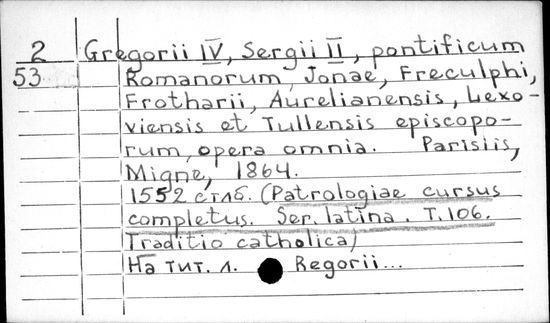 2 Gregorii IV, Sergii II, pontificum
53 Romanorum, Jonae, Freculphi,
Frotharii, Aurelianensis, Lexo-
viensis et Tullensis episcopo-
rum, opera omnia. Parisiis,
Migne, 1864.
1552 стлб. (Patrologiae cursus
completus. Ser. latina. T.106.
Traditio catholica)
На тит. л. Regorii...